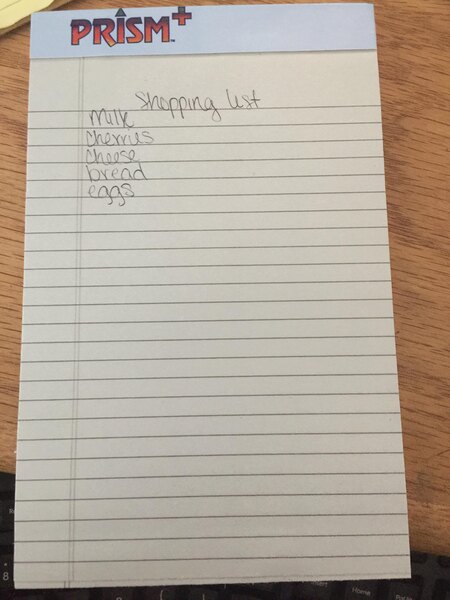 PRISM+™
Shopping list
Milk
Cherries
Cheese
bread
eggs
8
Home